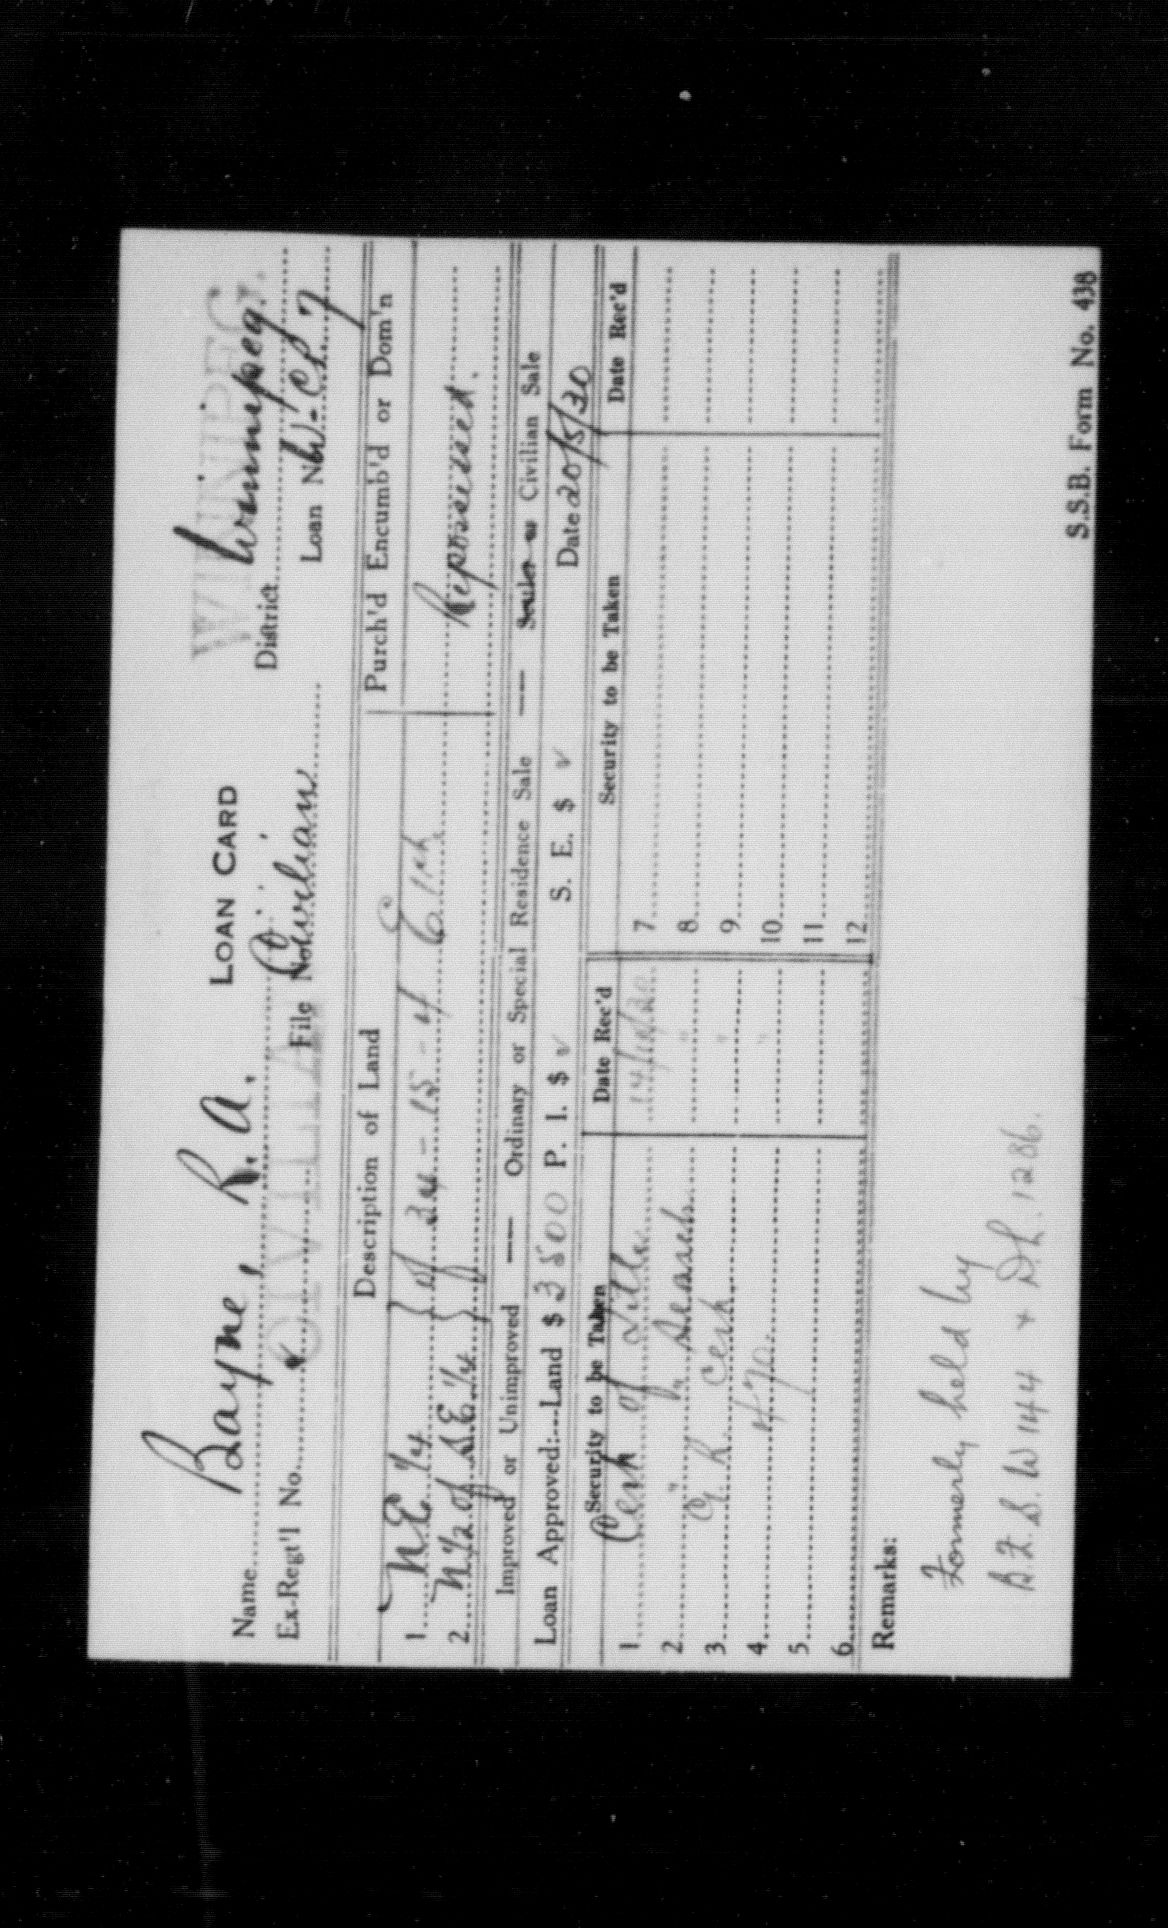 LOAN CARD
WINNIPEG.
Name Bayne, R. A. District Winnipeg.
Ex-Regt'l No. CIVILIAN File No. Civilian Loan No. W-CL. 7
Description of Land Purch'd Encumb'd or Dom'n
1 NE 1/4 } of 34 - 15 - 4 E 1st
2 N 1/2 of SE 1/4 } Repossessed.
Improved or Unimproved — Ordinary or Special Residence Sale — Civilian Sale
Loan Approved:---Land $ 3500 P. I. $ v S. E. $ v Date 20/5/30
Security to be Taken Date Rec'd Security to be Taken Date Rec'd
1 Cert of Title 14/10/30 7
2 " " Search " 8
3 G. R. Cert. " 9
4 470. " 10
5 11
6 12
Remarks:
Formerly held by
B.F. S. W 144 + DL. 1286.
S.S.B. Form No. 438